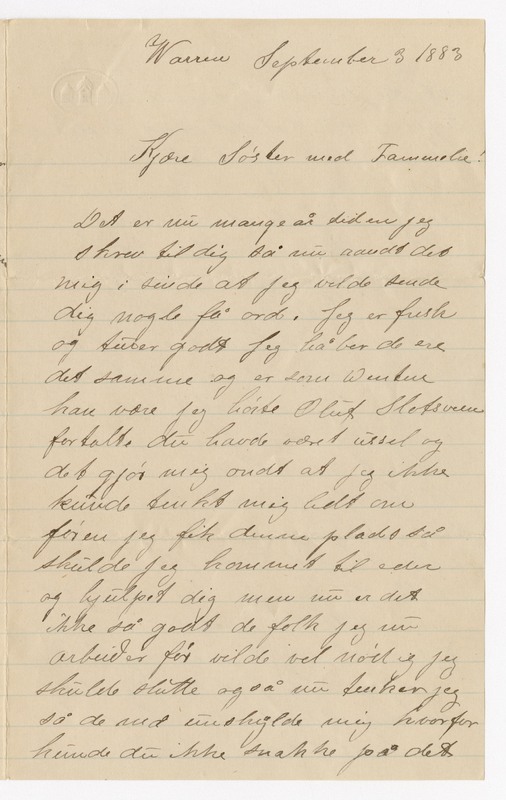 Warren September 3 1883
Kjære Søster med Fammelie!
Det er nu mange år siden jeg
skrev til dig så nu randt det
mig i sinde at jeg vilde sende
dig nogle få ord. Jeg er frisk
og lever godt Jeg håber de ere
det samme og er som Wentu
kan være jeg hørte Oluf Slotsveen
fortalte du havde været ussel og
det gjør mig ondt at jeg ikke
kunde tenkt mig lidt om
føren jeg fik denne plads så
skulde jeg kommet til eder
og hjulpet dig men nu er det
ikke så godt de folk jeg nu
arbeider før vilde vel nødig jeg
skulde slutte også nu tenker jeg
så de må unskylde mig hvorfor
kunde du ikke snakke på det